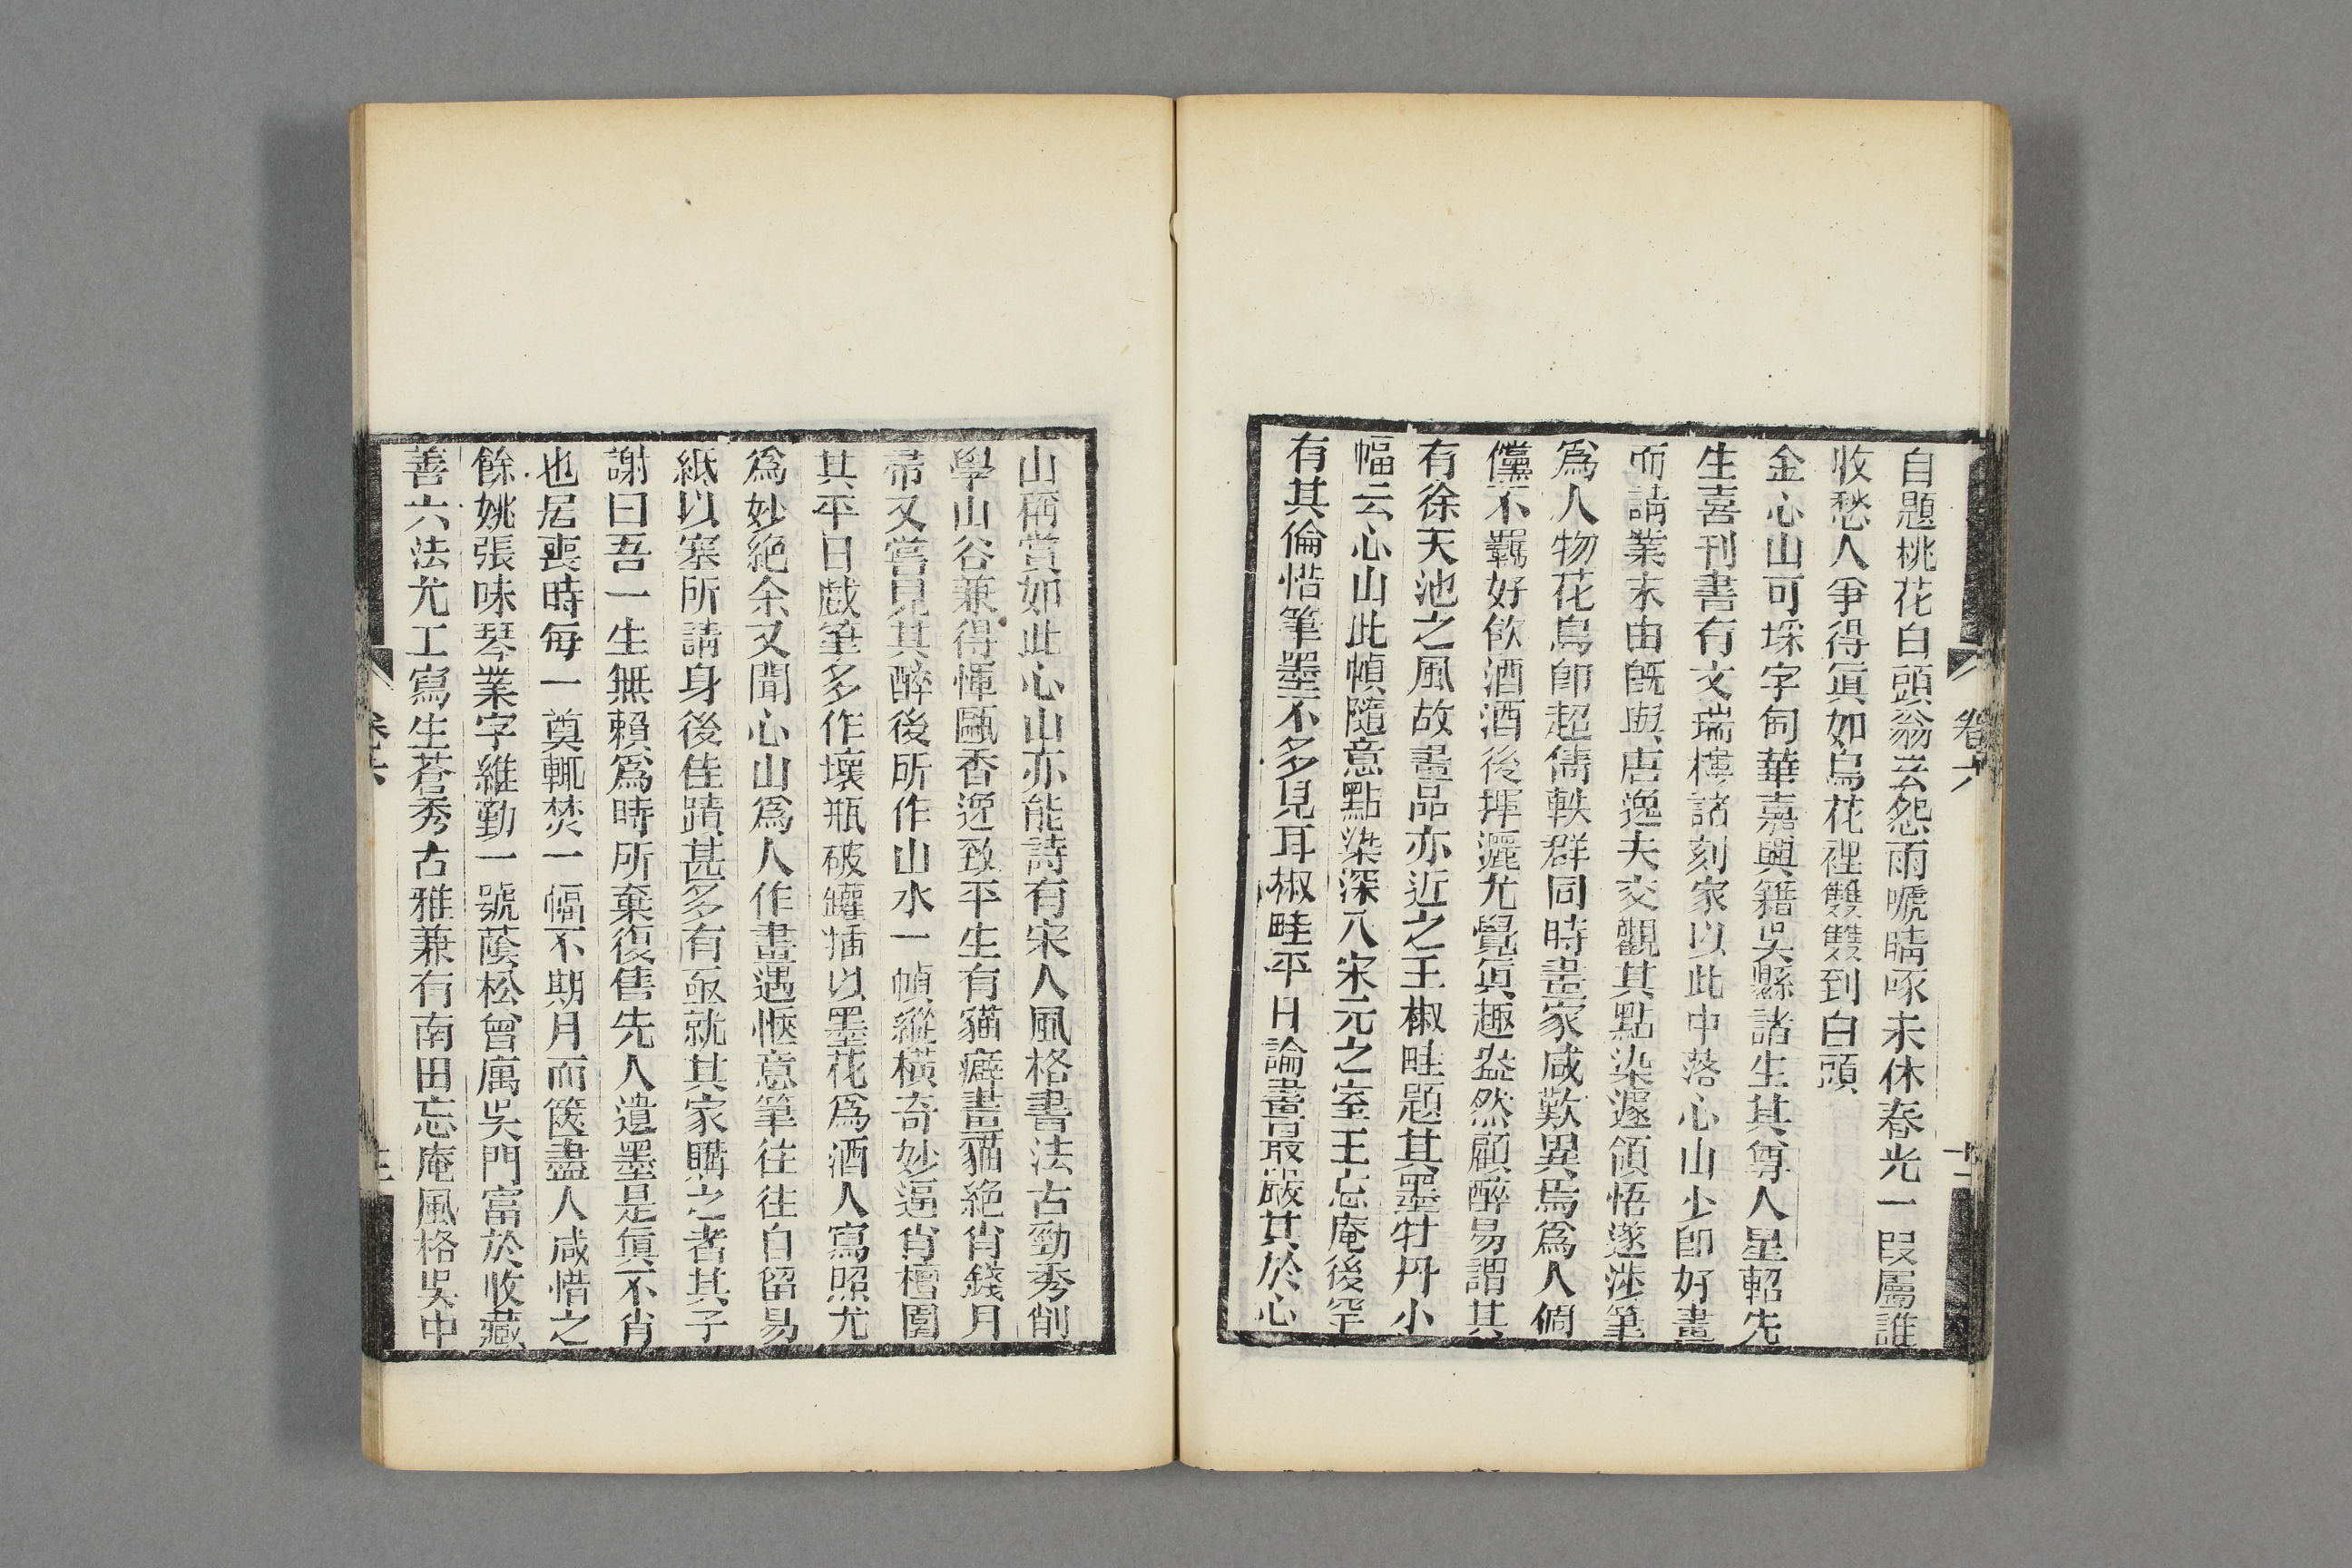 自題桃花白頭翁云怨雨唬晴啄未休春光一叚屬誰
收愁人爭得寘如鳥花裡雙雙到白頭
金心山可埰字甸華嘉興籍吳縣諸生其尊人星軺先
生喜刊書有文瑞樓諸刻家以此中落心山少卽好畫
而請業末由旣與唐逸夫交觀其點染遽領悟遂涉筆
爲人物花鳥卽超儔軼群同時畫家咸歎異焉爲人倜
儻不羈好飲酒酒後揮灑尤覺眞趣盎然顧醉易謂其
有徐天池之風故畫品亦近之王椒畦題其墨牡丹小
幅云心山此幀隨意點染深入宋元之室王忘庵後罕
有其倫惜筆墨不多見耳椒畦平日論畫最嚴其於心
卷六
十二
山稱賞如此心山亦能詩有宋人風格書法古勁秀削
學山谷兼得惲甌香逸致平生有貓癖畫貓絕肖錢月
帚又嘗見其醉後所作山水一幀縱橫奇妙逼肖檀園
其平日戲筆多作壞瓶破罐插以墨花爲酒人寫照尤
爲妙絕余又聞心山爲人作畫遇愜意筆往往自留易
紙以塞所請身後佳蹟甚多有亟就其家購之者其子
謝曰吾一生無賴爲時所棄復售先人遺墨是眞不肖
也居喪時每一奠輒焚一幅不期月而篋盡人咸惜之
餘姚張味琴業字維勤一號蔭松曾寓吳門富於收藏
善六法尤工寫生蒼秀古雅兼有南田忘庵風格吳中